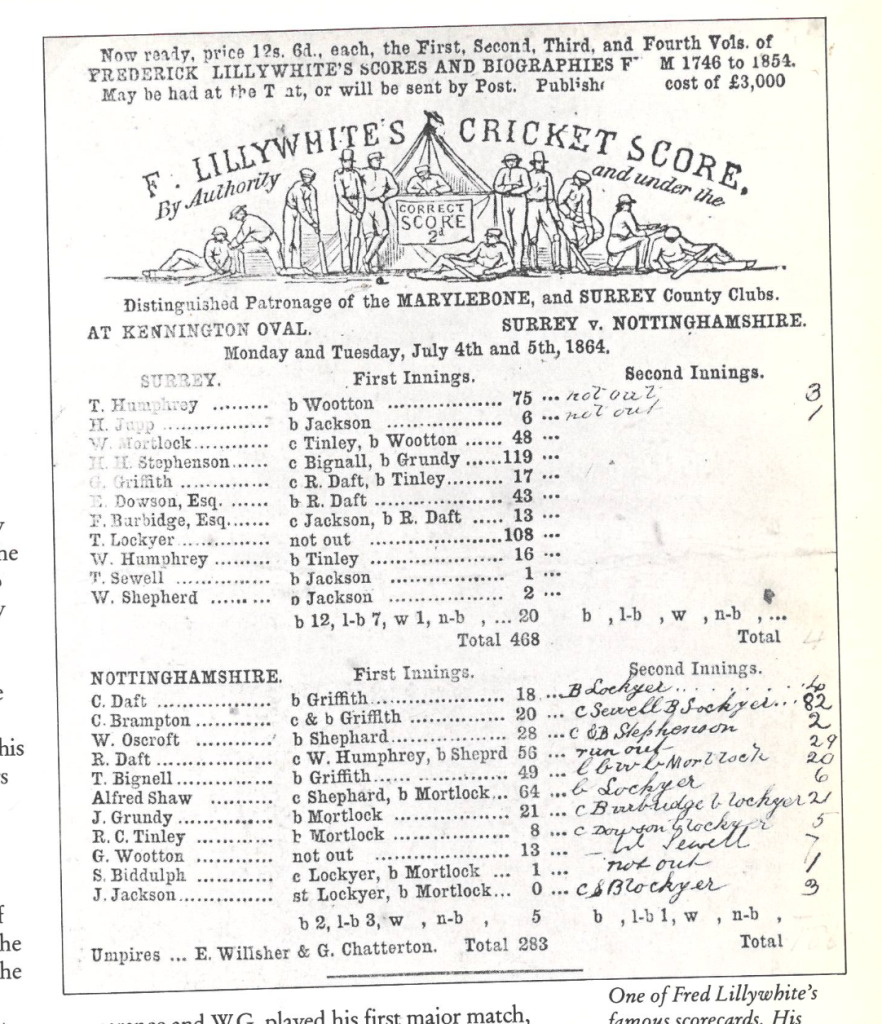 Now ready, price 12s. 6d., each, the First, Second, Third, and Fourth Vols. of
FREDERICK LILLYWHITE'S SCORES AND BIOGRAPHIES F M 1746 to 1854.
May be had at the T at, or will be sent by Post. Publish cost of £3,000
F. LILLYWHITE'S CRICKET SCORE,
By Authority and under the
CORRECT
SCORE
2d
Distinguished Patronage of the MARYLEBONE, and SURREY County Clubs.
AT KENNINGTON OVAL. SURREY v. NOTTINGHAMSHIRE.
Monday and Tuesday, July 4th and 5th, 1864.
SURREY. First Innings. Second Innings.
T. Humphrey ......... b Wootton .................. 75 ... not out 3
H. Jupp .................. b Jackson .................. 6 ... not out 1
W. Mortlock............ c Tinley, b Wootton ...... 48 ...
H. H. Stephenson...... c Bignall, b Grundy ......119 ...
G. Griffith ............... c R. Daft, b Tinley......... 17 ...
E. Dowson, Esq. ...... b R. Daft .................. 43 ...
F. Burbidge, Esq....... c Jackson, b R. Daft ..... 13 ...
T. Lockyer ............... not out .....................108 ...
W. Humphrey ......... b Tinley .................. 16 ...
T. Sewell ............... b Jackson .................. 1 ...
W. Shepherd ......... b Jackson .................. 2 ...
b 12, l-b 7, w 1, n-b , ... 20 b , l-b , w , n-b , ...
Total 468 Total 4
NOTTINGHAMSHIRE. First Innings. Second Innings.
C. Daft .................. b Griffith..................... 18 ... B Lockyer
C. Brampton ............ c & b Griffith ............ 20 ... c Sewell B Lockyer... 82
W. Oscroft ............ b Shephard.................. 28 ... c & B Stephenson 2
R. Daft .................. c W. Humphrey, b Sheprd 56 ... run out 29
T. Bignell ............... b Griffith..................... 49 ... l b w b Mortlock 20
Alfred Shaw ......... c Shephard, b Mortlock... 64 ... b Lockyer 6
J. Grundy ............... b Mortlock .................. 21 ... c Burbridge b lockyer 21
R. C. Tinley ............ b Mortlock .................. 8 ... c Dowson b lockyer 5
G. Wootton ............ not out ..................... 13 ... Sewell 7
S. Biddulph ............ c Lockyer, b Mortlock ... 1 ... not out 1
J. Jackson............... st Lockyer, b Mortlock... 0 ... c & B lockyer 3
b 2, l-b 3, w , n-b , 5 b , l-b 1, w , n-b ,
Umpires ... E. Willsher & G. Chatterton. Total 283 Total
his
he
he
and W.G. played his first major match,
One of Fred Lillywhite's
famous scorecards. His